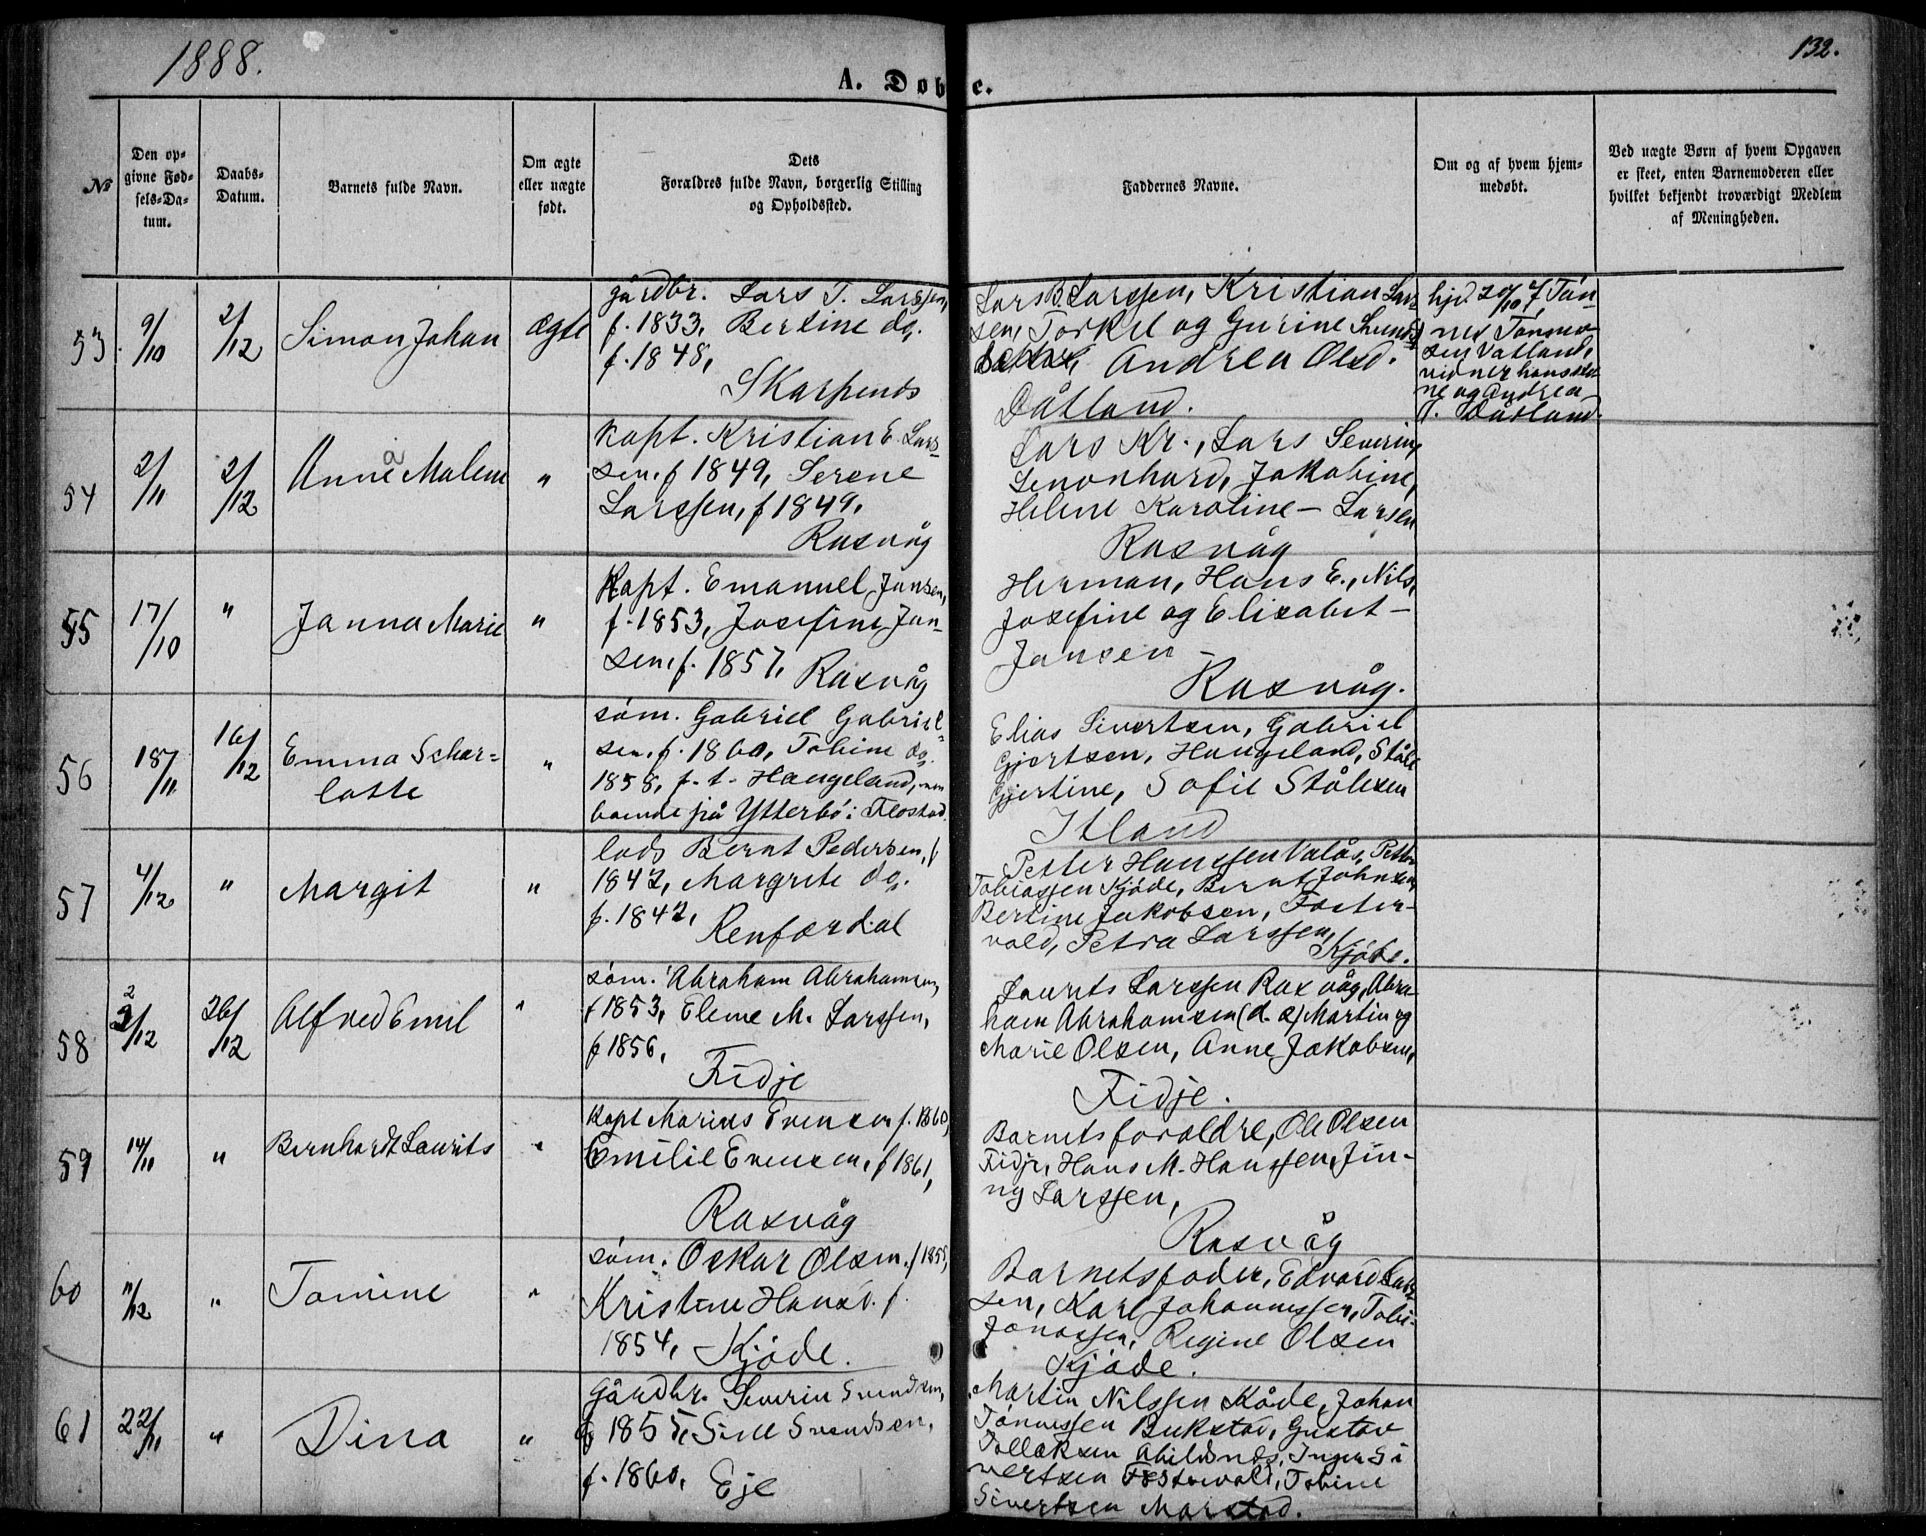 1888.
132.
A. Døbte.
No
Den opgivne Fødsels-Datum.
Daabs-Datum.
Barnets fulde Navn.
Om ægte eller uægte født.
Dets Forældres fulde Navn, borgerlig Stilling og Opholdssted.
Faddernes Navne.
Om og af hvem hjemmedøbt.
Ved uægte Børn af hvem Opgaven er skeet, enten Barnemoderen eller hvilket bekjendt troværdigt Medlem af Menigheden.
53. 9/10 2/12 Simon Johan ægte
gårdbr. Lars T. Larssen,
f. 1833, Bertine do,
f. 1848,
Skarpenes
Lars B. Larssen, Kristian Lars-
sen, Torkel og Gurine
Andrea Olsd.
Dåtland.
hjd. 20/10 af Tøn-
nes Tønnes-
sen Vatland,
vidner
og Andrea
T. Dåtland.
54 2/11 2/12 Anna Malene "
kapt. Kristian E. Lars-
sen, f 1849, Serene
Larssen, f 1849,
Rasvåg
Lars Kr., Lars Severin,
Lenonhard, Jakobine,
Helene Karoline – Larsen
Rasvåg
55 17/10 " Janna Marie "
Kapt. Emanuel Jansen,
f. 1853, Josefine Jan-
sen, f. 1857, Rasvåg
Herman, Hans E., Nils,
Josefine og Elisabet –
Jansen –
Rasvåg.
56 18/11 16/12 Emma Schar-
lotte "
søm. Gabriel Gabriel-
sen, f. 1860, Tobine do,
1858, f. t. Haugeland, men
boende på Ytterbø i Flostad.
Elias Sivertsen, Gabriel
Gjertsen, Haugeland, Ståle
Gjertine, Sofie Stålesen
Itland
57 4/12 " Margit "
lods Bernt Pedersen, f
1847, Margrete do,
f. 1842, Renfærdal
Petter Hanssen Valås, Petter
Tobiassen Kjøde, Bernt Johnsen,
Bertine Jakobsen, Foster-
vold, Petra Larssen,
Kjøde.
58 2/12 26/12 Alfred Emil "
søm. Abraham Abrahamsen,
f 1853, Elene M. Larssen,
f 1856,
Fidje
Laurits Larssen Rasvåg, Abra-
ham Abrahamsen (d. æ) Martin og
Marie Olsen, Anne Jakobsen,
Fidje.
59 14/11 " Bernhardt Laurits "
Kapt Marius Evensen f. 1860,
Emilie Evensen, f 1861,
Rasvåg
Barnets foræ​ldre, Ole Olsen
Fidje, Hans M. Hanssen, Jin-
ny Larssen,
Rasvåg
60 11/12 " Tomine "
søm. Oskar Olsen. f 1855,
Kristine Hansd. f.
1854, Kjøde.
Barnets fader, Edvard Lars-
sen, Karl Johannessen, Tobi-
Jonassen, Regine Olsen
Kjøde.
61 22/11 " Dina "
Gårdbr. Severin Svendsen,
f 1855, Sille Svendsen,
f. 1860, Eje
Martin Nilssen Kåde, Johan
Tønnessen Bukstad, Gustav
Tollaksen Abilsnes, Inger Si-
vertsen Fostervold, Tobine
Sivertsen Marstad.